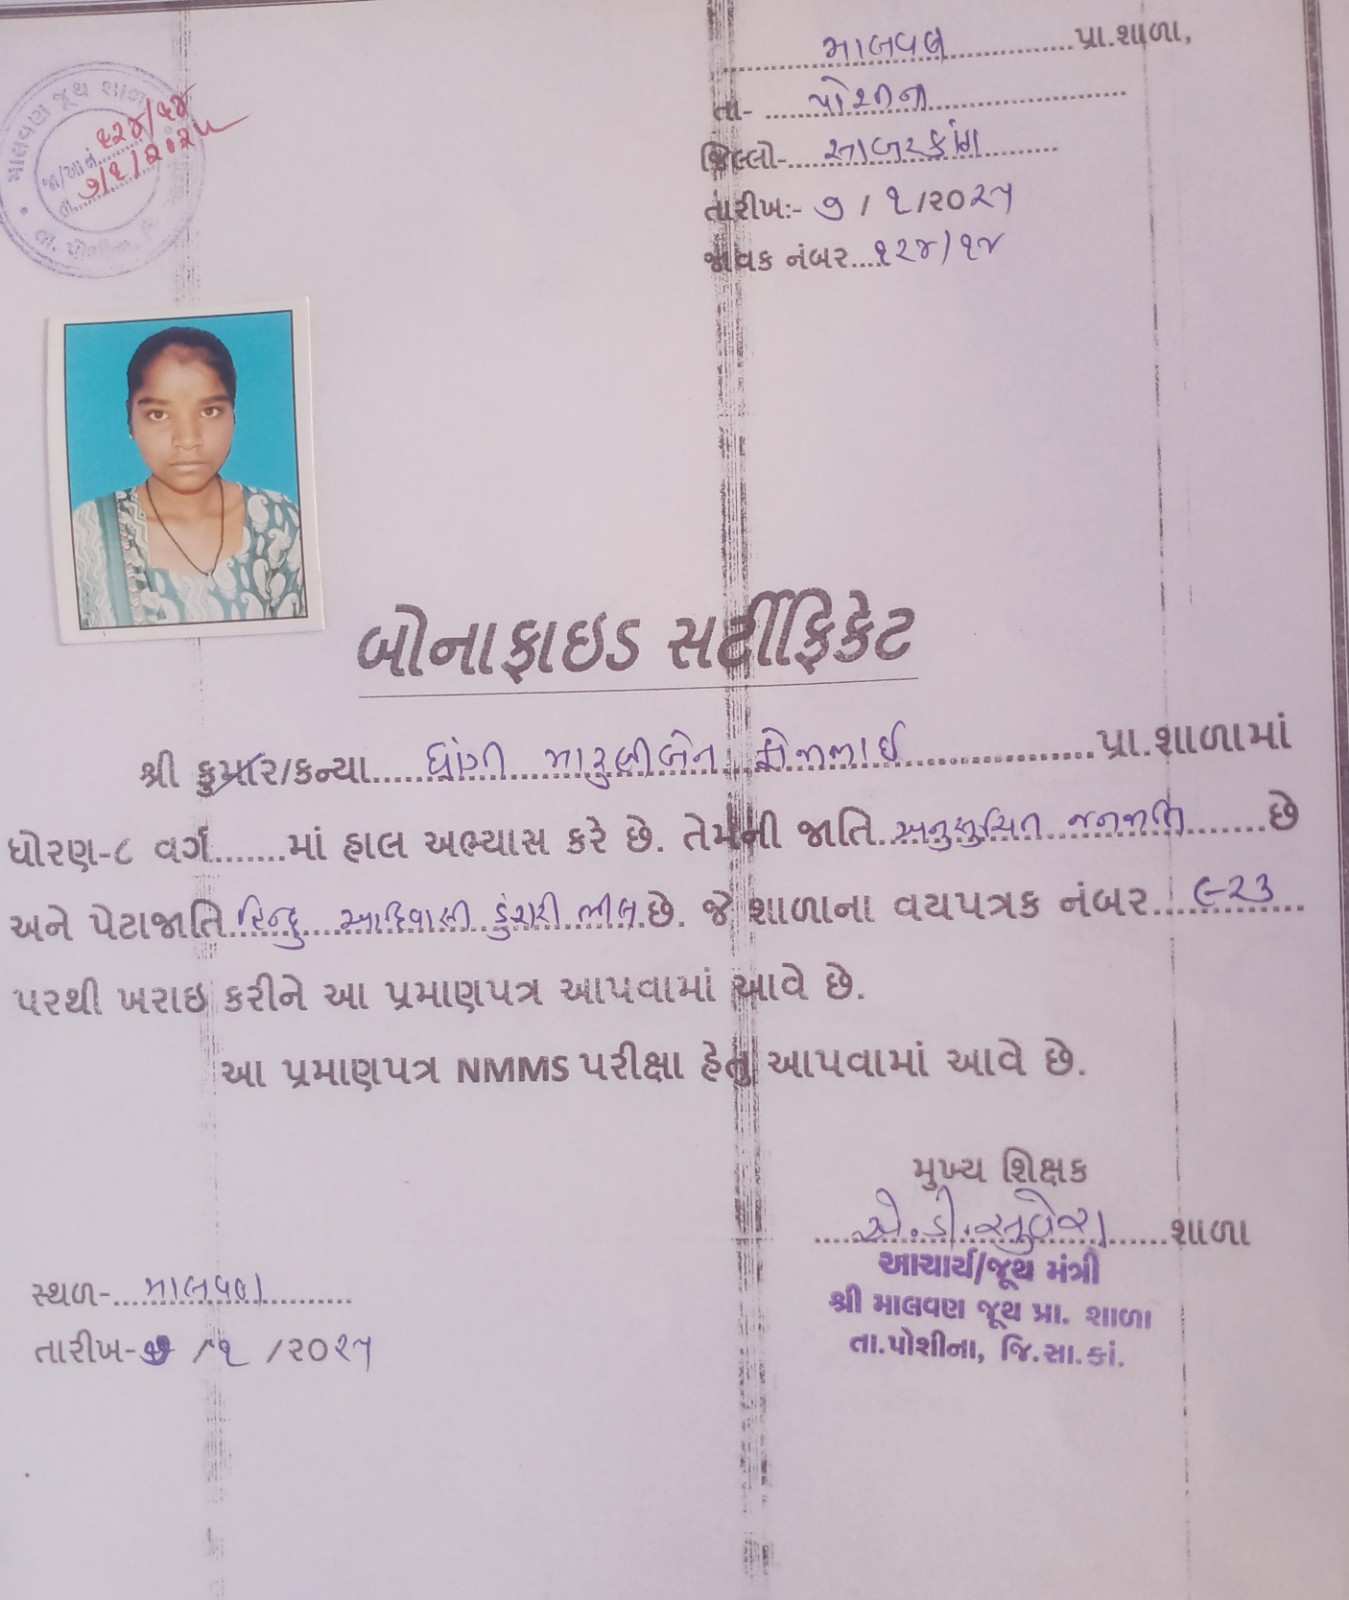 માલવણ જૂથ શાળા
જા/ખા નં. ૬૨૪/૬૪
તા. ૭/૧/૨૦૨૫
માલવણ પ્રા.શાળા,
તા- પોશીના
જિલ્લો- સાબરકાંઠા
તારીખઃ- ૭ / ૧ /૨૦૨૫
જાવક નંબર....૧૨૪/૧૪
બોનાફાઇડ સર્ટીફિકેટ
શ્રી કુમાર/કન્યા પ્રા.શાળામાં
ધોરણ-૮ વર્ગ.......માં હાલ અભ્યાસ કરે છે. તેમની જાતિ અનુસુચિત જનજાતિ છે
અને પેટાજાતિ હિન્દુ આદિવાસી ડુંગરી ભીલ છે. જે શાળાના વયપત્રક નંબર ૯૨૩
પરથી ખરાઇ કરીને આ પ્રમાણપત્ર આપવામાં આવે છે.
આ પ્રમાણપત્ર NMMS પરીક્ષા હેતુ આપવામાં આવે છે.
મુખ્ય શિક્ષક
એ.ડી. શાળા
આચાર્ય/જૂથ મંત્રી
શ્રી માલવણ જૂથ પ્રા. શાળા
તા.પોશીના, જિ.સા.કાં.
સ્થળ- માલવણ
તારીખ- ૭ / ૧ / ૨૦૨૫